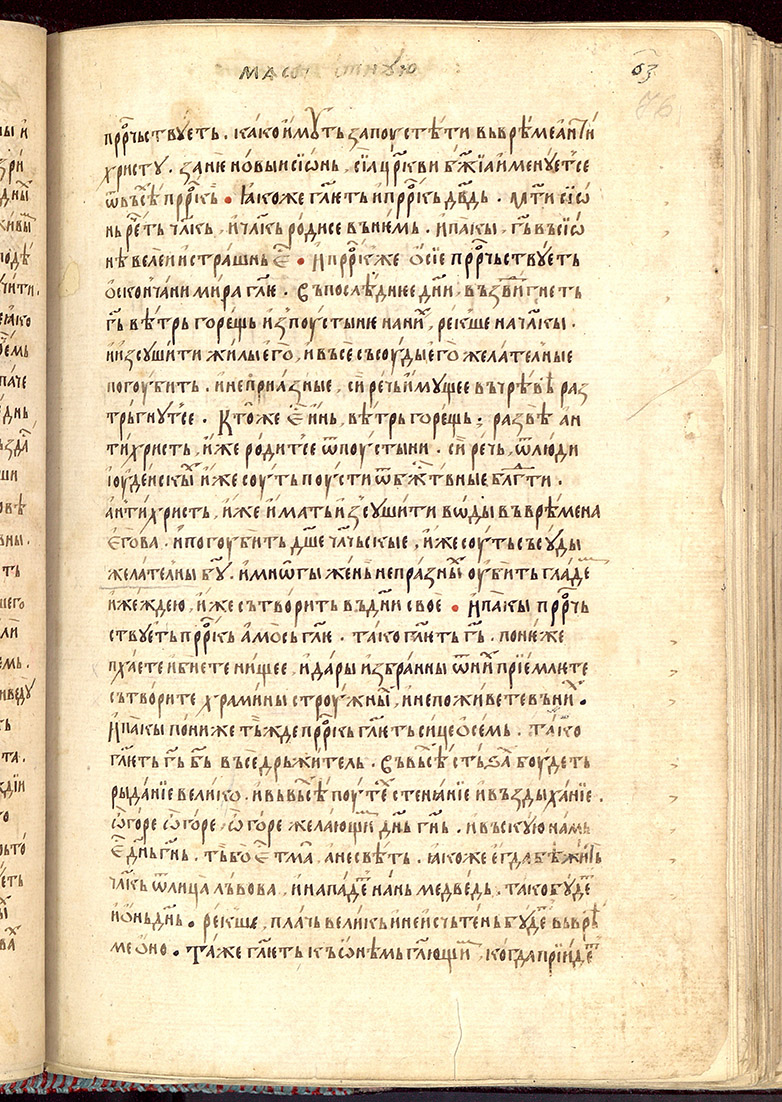 маѡ҇ стнꙋю
ѻ҃ꙁ
76
прⷪ҇рчьствꙋ́еть . како и́мꙋть запоустѣ́ти вьврѣ́ме антїи
христꙋ . зан꙼е но́выи сїѡ́нь , сїа цр҃кви бж҃їа именꙋе́тсе
ѿ въсѣ́ прⷪ҇рⷦ҇ь • ꙗ́коже гл҃еть и прⷪ҇ркь дв҃дь . м͠ти сїѡ́
нь рⷱ҇еть чл҃кь , и чл҃кь ро́дисе вьне́мь . и па́кы , г҃ь вьсїѡ́
нѣ вели́и и стра́шнь е҆ⷭ҇ • И прⷪ҇рⷦ҇кже ѻ̓сїе прⷪ҇рчьствꙋеть
ѻ̓скончани мира гл҃ѥ . Съпослѣ́днее дн҃и , възⷣвигнеть
г҃ь вѣ́трь горе́щь и́зпоу́стынѥ нани́ⷯ , ре́кꙋше на чл҃кы .
и и́зсꙋши́ти жи́лы е҆го̀ , и въсе съсоу́ды е҆го̀ жела́телные
погоу́бить . и непри́азные , сирѣчь и́мꙋщее вьчрѣ́вѣ раз
тръ́гнꙋтсе . Кто́же е҆ⷭ҇ и́нь , вѣ́трь горе́щь ; ра́звѣ ан
ти́христь , и́же ро́дитсе ѿпоу́стыни . си́ рѣчь , ѿлю́ди
іꙋдѐискыⷯ и́же соу́ть поу́сти ѿбжⷭ҇твные бл҃гти .
а́нтихристь , и́же и́мать и́зсꙋшити во́ды въврѣ́мена
е҆го́ва . и погоу́бить дш҃е чл҃чьскые , и́же соу́ть съсꙋды
жела́телны бг҃ꙋ . и мнѡ́гы жень̀ непра́зныⷯ оу҆бїть гла́де
и́жеждею , и́же сътво́рить въдн҃и своѐ • И па́кы прⷪ҇рчь
ствꙋе́ть прⷪ҇ркь а́мось гл҃ѥ . та́ко гл҃еть г҃ь . поне́же
пха́ете и бїете ни́щее , и да́ры и́збранны ѿниⷯ прїе́млѥте
сътво́рите хра́мины строу́жныⷯ , и непожи́вете вьниⷯ •
И па́кы пони́же тъ́жде прⷪ҇ркь гл҃еть си́це ѻ҆ се́мь . та́ко
гл҃еть г҃ь б҃ь въседръ́житель . Съвьсѣ́ стъ́гнаⷯ боу́деть
рыда́нїе вели́ко . и вьвьсѣ́ поу́теⷯ стена́нїе и въздыха́нїе .
ѽгоре ѽгоре , ѽгоре жела́ющиⷨ дн҃ь гн҃ь . и въскꙋ́ю на́мь
е҆ⷭ҇ дн҃ь гн҃ь . тъ́ бо е҆ⷭ҇ тма̀ , а не свѣ́ть . ꙗ́коже е҆гда бѣ́жить
чл҃кь ѿлица̀ лъ́вова , и напа́деⷮ нань медвѣ́дь . та́ко бꙋ́деⷮ
и ѻ҆ньдн҃ь . ре́кꙋше , плачь вели́кь и неи́счьтень бꙋ́деⷮ вьврѣ́
ме ѻ̓но • Та́же гл҃еть къси́ѡнѣмь гл҃ющиⷨ , когда̀ прїи́деⷮ